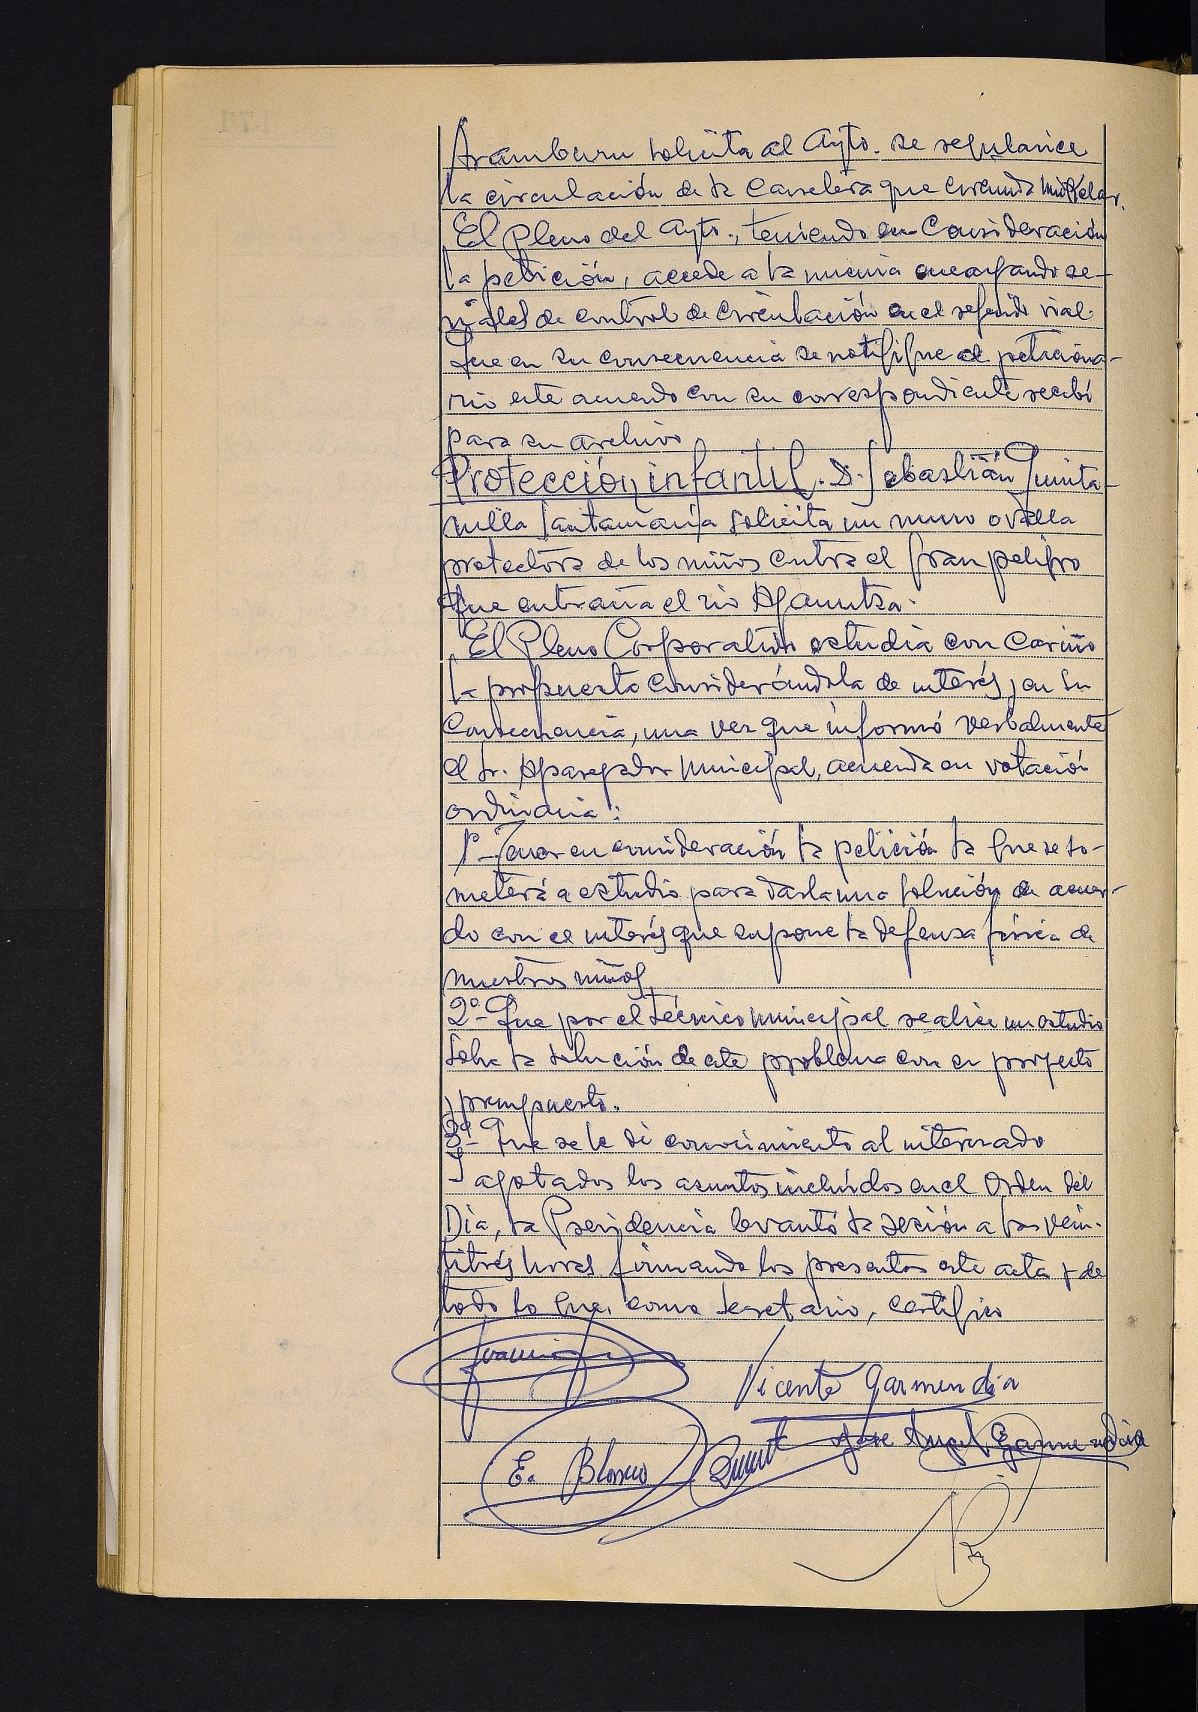 Aramburu solicita al Ayto. se regularice
la circulación de la Carretera que circunda
El Pleno del Ayto., teniendo en Consideración
la petición, accede a la misma encargando se-
ñales de control de circulación en el referido vial.
Que en su consecuencia se notifique al peticiona-
rio este acuerdo con su correspondiente recibí
para su archivo
Protección infantil. D. Sebastián Quinta-
nilla Santamaría solicita un muro o valla
protectora de los niños contra el gran peligro
que entraña el río Agauntza.
El Pleno Corporativo estudia con Cariño
la propuesta considerándola de interés y en su
Consecuencia, una vez que informó verbalmente
el Sr. Aparejador Municipal, acuerda en votación
ordinaria:
1º- Tomar en consideración la petición la que se so-
meterá a estudio para darla una solución de acuer-
do con el interés que supone la defensa física de
nuestros niños,
2º- Que por el técnico municipal realice un estudio
sobre la solución de este problema con su proyecto
y presupuesto.
3º- Que se le dé conocimiento al interesado
Y agotados los asuntos incluídos en el Orden del
Día, la Presidencia levantó la sesión a las vein-
titrés horas firmando los presentes este acta y de
todo lo que, como Secretario, certifico
Vicente Garmendia
Jose Angel Garmendia
E. Blanco